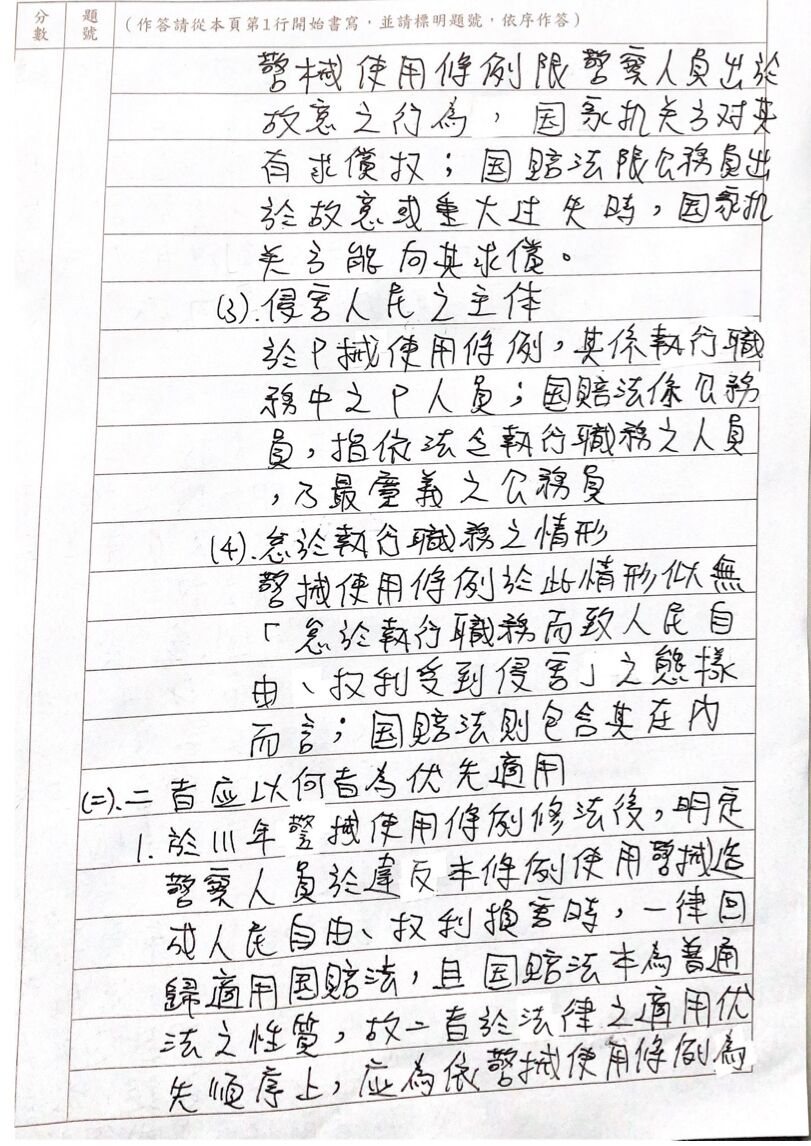 分數
題號
(作答請從本頁第1行開始書寫,並請標明題號,依序作答)
警械使用條例限警察人員出於
故意之行為,国家机关方对其
有求償权;国賠法限公務員出
於故意或重大过失時,国家机
关方能向其求償。
(3).侵害人民之主体
於P械使用條例,其係執行職
務中之P人員;国賠法係公務
員,指依法令執行職務之人員
,乃最廣義之公務員
(4).怠於執行職務之情形
警械使用條例於此情形似無
「怠於執行職務而致人民自
由、权利受到侵害」之態樣
而言;国賠法則包含其在內
(二).二者应以何者為优先適用
1.於111年警械使用條例修法後,明定
警察人員於違反本條例使用警械造
成人民自由、权利損害時,一律回
歸適用国賠法,且国賠法本為普通
法之性质,故二者於法律之適用优
先順序上,应為依警械使用條例為